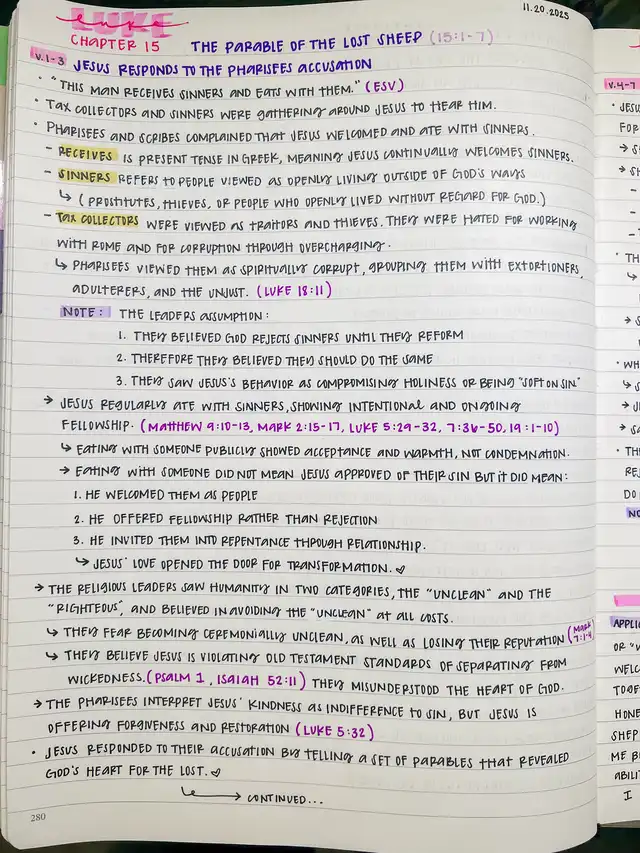 11.20.2025
LUKE
Luke
CHAPTER 15 THE PARABLE OF THE LOST SHEEP (15:1-7)
V.1-3 JESUS RESPONDS TO THE PHARISEES ACCUSATION
• "THIS MAN RECEIVES SINNERS AND EATS WITH THEM." (ESV)
• TAX COLLECTORS AND SINNERS WERE GATHERING AROUND JESUS TO HEAR HIM.
• PHARISEES AND SCRIBES COMPLAINED THAT JESUS WELCOMED AND ATE WITH SINNERS.
- RECEIVES IS PRESENT TENSE IN GREEK, MEANING JESUS CONTINUALLY WELCOMES SINNERS.
- SINNERS REFERS TO PEOPLE VIEWED AS OPENLY LIVING OUTSIDE OF GOD'S WAYS
↳ (PROSTITUTES, THIEVES, OR PEOPLE WHO OPENLY LIVED WITHOUT REGARD FOR GOD.)
- TAX COLLECTORS WERE VIEWED AS TRAITORS AND THIEVES. THEY WERE HATED FOR WORKING
WITH ROME AND FOR CORRUPTION THROUGH OVERCHARGING.
↳ PHARISEES VIEWED THEM AS SPIRITUALLY CORRUPT, GROUPING THEM WITH EXTORTIONERS,
ADULTERERS, AND THE UNJUST. (LUKE 18:11)
NOTE: THE LEADERS ASSUMPTION:
1. THEY BELIEVED GOD REJECTS SINNERS UNTIL THEY REFORM
2. THEREFORE THEY BELIEVED THEY SHOULD DO THE SAME
3. THEY SAW JESUS'S BEHAVIOR AS COMPROMISING HOLINESS OR BEING "SOFT ON SIN."
→ JESUS REGULARLY ATE WITH SINNERS, SHOWING INTENTIONAL AND ONGOING
FELLOWSHIP. (MATTHEW 9:10-13, MARK 2:15-17, LUKE 5:29-32, 7:36-50, 19:1-10)
↳ EATING WITH SOMEONE PUBLICLY SHOWED ACCEPTANCE AND WARMTH, NOT CONDEMNATION.
→ EATING WITH SOMEONE DID NOT MEAN JESUS APPROVED OF THEIR SIN BUT IT DID MEAN:
1. HE WELCOMED THEM AS PEOPLE
2. HE OFFERED FELLOWSHIP RATHER THAN REJECTION
3. HE INVITED THEM INTO REPENTANCE THROUGH RELATIONSHIP.
↳ JESUS' LOVE OPENED THE DOOR FOR TRANSFORMATION. ♡
→ THE RELIGIOUS LEADERS SAW HUMANITY IN TWO CATEGORIES, THE "UNCLEAN" AND THE
"RIGHTEOUS", AND BELIEVED IN AVOIDING THE "UNCLEAN" AT ALL COSTS.
↳ THEY FEAR BECOMING CEREMONIALLY UNCLEAN, AS WELL AS LOSING THEIR REPUTATION (MARK 7:1-4)
↳ THEY BELIEVE JESUS IS VIOLATING OLD TESTAMENT STANDARDS OF SEPARATING FROM
WICKEDNESS. (PSALM 1, ISAIAH 52:11) THEY MISUNDERSTOOD THE HEART OF GOD.
→ THE PHARISEES INTERPRET JESUS' KINDNESS AS INDIFFERENCE TO SIN, BUT JESUS IS
OFFERING FORGIVENESS AND RESTORATION (LUKE 5:32)
• JESUS RESPONDED TO THEIR ACCUSATION BY TELLING A SET OF PARABLES THAT REVEALED
GOD'S HEART FOR THE LOST. ♡
↳ CONTINUED...
280
V.4-7
• JESU
FOR
→ S
→ SH
• TH
→ S
• WH
↳ S
→ JE
→ SA
• THE
REJ
DO
NO
APPLIC
OR "W
WELC
TOGE
HONE
SHEP
ME B
ABILI
I